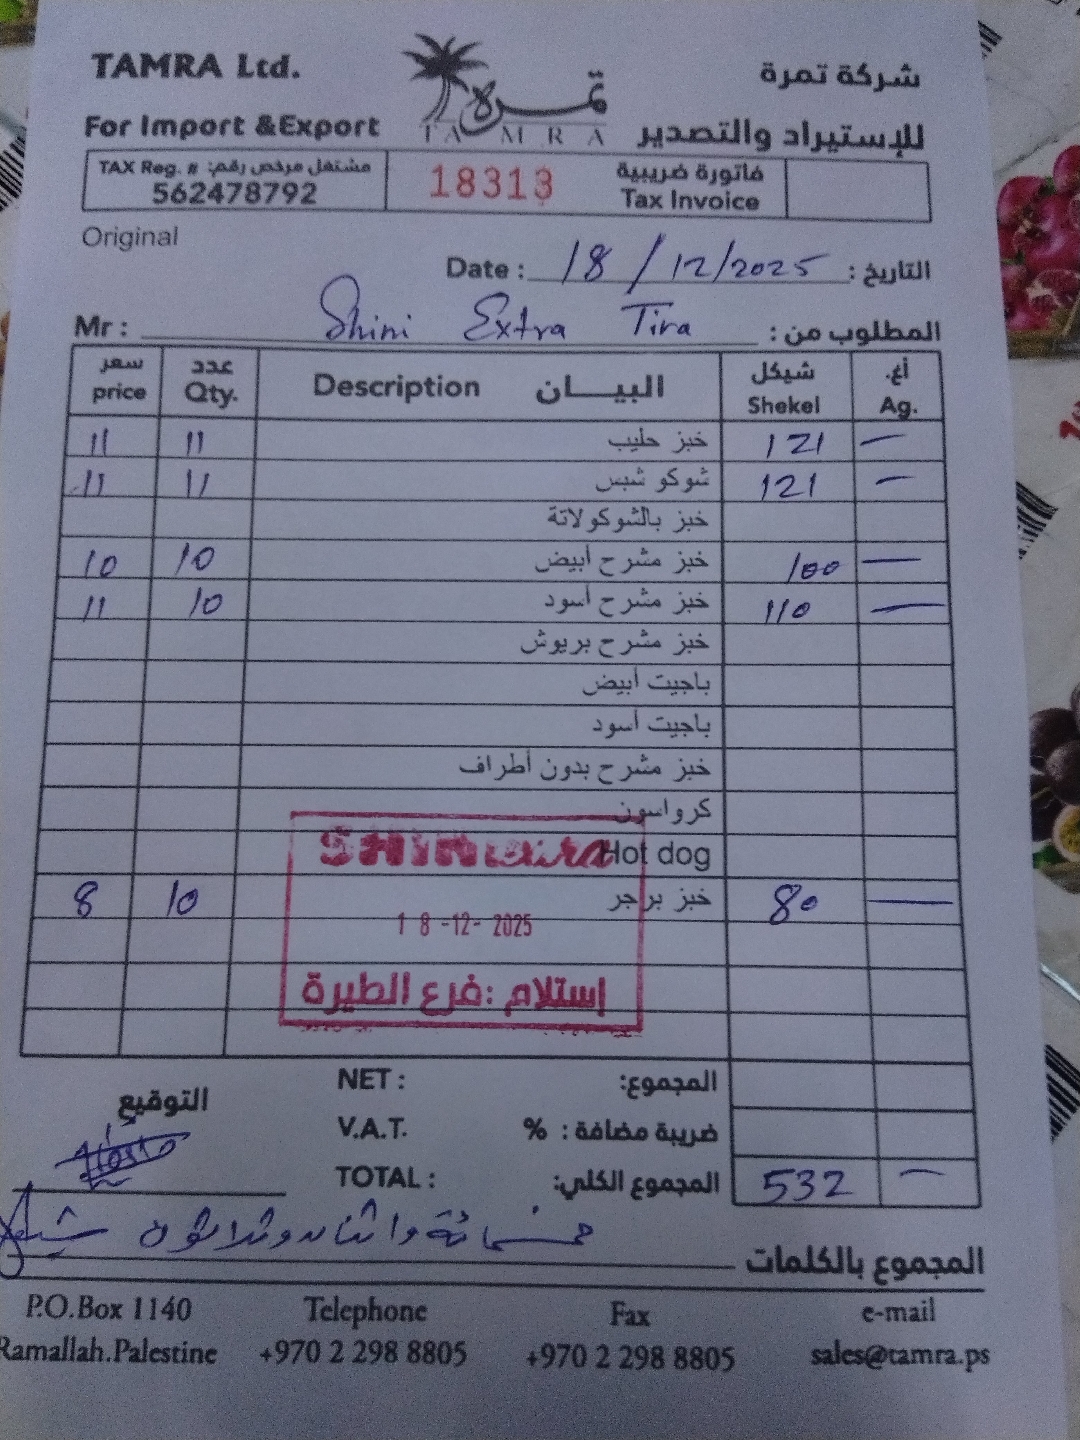 TAMRA Ltd.
شركة تمرة
تمرة
TAMRA
For Import &Export
للإستيراد والتصدير
TAX Reg. # مشتغل مرخص رقم:
562478792
18313
فاتورة ضريبية
Tax Invoice
Original
Date : 18/12/2025 التاريخ :
Mr : Shini Extra Tira المطلوب من :
سعر عدد Description البيـــان شيكل أغ.
price Qty. Shekel Ag.
11 11 خبز حليب 121 —
11 11 شوكو شبس 121 —
خبز بالشوكولاتة
10 10 خبز مشرح أبيض 100 —
11 10 خبز مشرح أسود 110 —
خبز مشرح بريوش
باجيت أبيض
باجيت أسود
خبز مشرح بدون أطراف
كرواسون
Hot dog
8 10 خبز برجر 80 —
18-12-2025
إستلام :فرع الطيرة
NET : المجموع:
التوقيع
V.A.T. % ضريبة مضافة :
TOTAL : المجموع الكلي: 532 —
المجموع بالكلمات خمسمائة واثنان وثلاثون شيكل
P.O.Box 1140 Telephone Fax e-mail
Ramallah.Palestine +970 2 298 8805 +970 2 298 8805 sales@tamra.ps